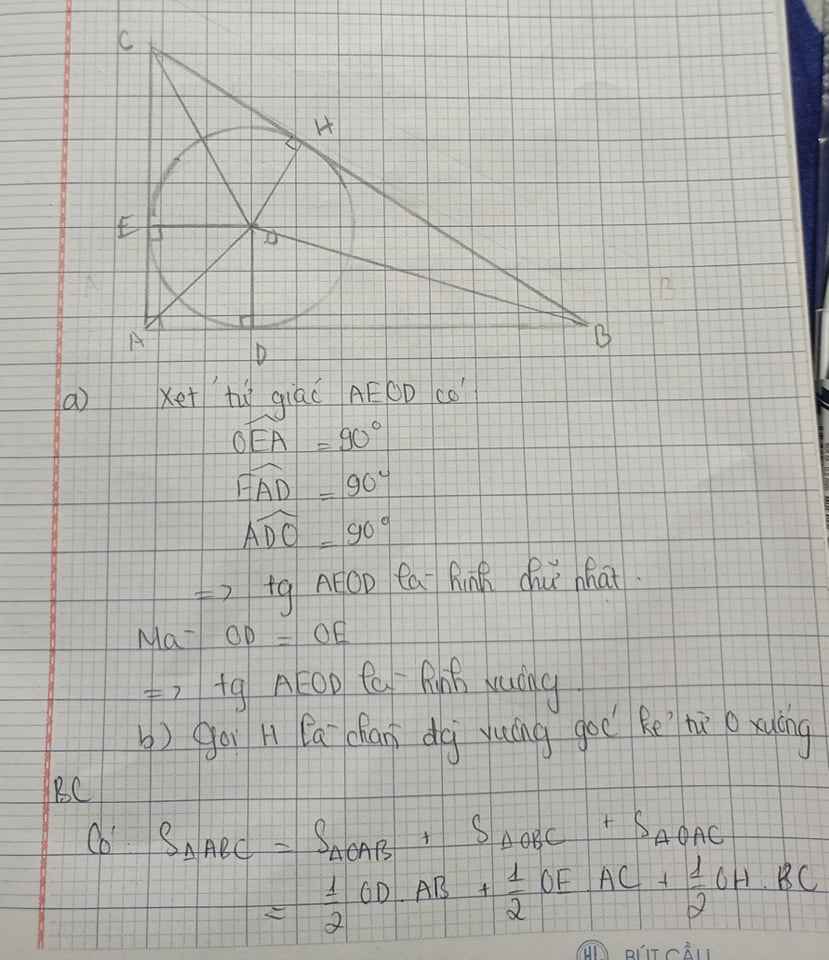 C
H
E
O
A
D
B
a) Xét tứ giác AEOD có:
OEA = 90°
EAD = 90°
ADO = 90°
=> tg AEOD là hình chữ nhật.
Mà OD = OE
=> tg AEOD là hình vuông.
b) gọi H là chân đg vuông góc kẻ từ O xuống
BC
Có: S△ABC = S△OAB + S△OBC + S△OAC
= 1/2 OD. AB + 1/2 OE. AC + 1/2 OH. BC
BÚT CẦU